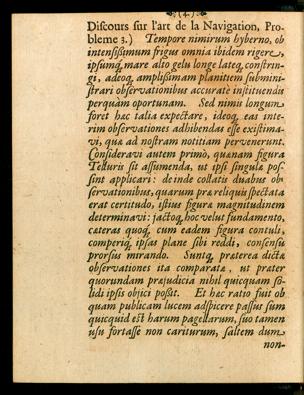 .(4.)
Discours sur l'art de la Navigation, Pro-
bleme 3.) Tempore nimirum hyberno, ob
intensissimum frigus omnia ibidem rigere,
ipsumq; mare alto gelu longe lateq; constrin-
gi, adeoq; amplissimam planitiem submini-
strari observationibus accurate instituendis
perquam oportunam. Sed nimis longum
foret hæc talia expectare, ideoq; eas inte-
rim observationes adhibendas esse existima-
vi, quæ ad nostram notitiam pervenerunt.
Consideravi autem primò, quænam figura
Telluris sit assumenda, ut ipsi singulæ pos-
sint applicari: deinde collatis duabus ob-
servationibus, quarum præ reliquis spectata
erat certitudo, istius figuræ magnitudinem
determinavi: jactoq; hoc velut fundamento,
cæteras quoq; cum eadem figura contuli,
comperiq; ipsas plane sibi reddi, consensu
prorsus mirando. Suntq; præterea dictæ
observationes ita comparatæ, ut præter
quorundam præjudicia nihil quicquam so-
lidi ipsis objici possit. Et hæc ratio fuit ob
quam publicam lucem adspicere passus sum
quicquid est harum pagellarum, suo tamen
usu fortasse non cariturum, saltem dum
non-